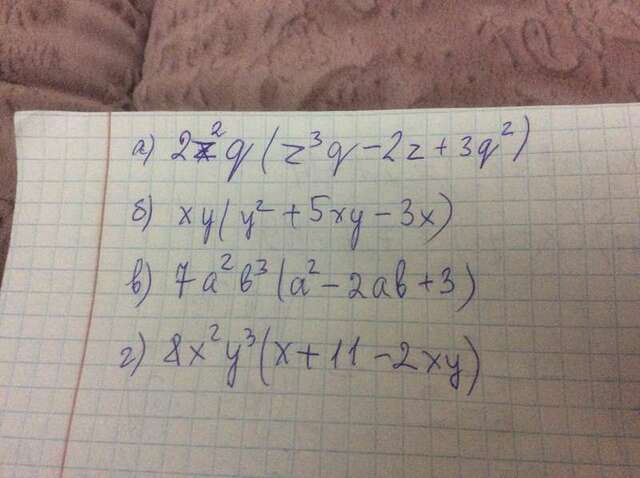 а) 2z²q(z³q-2z+3q²)
б) xy(y²+5xy-3x)
в) 7a²b³(a²-2ab+3)
г) 8x²y³(x+11-2xy)